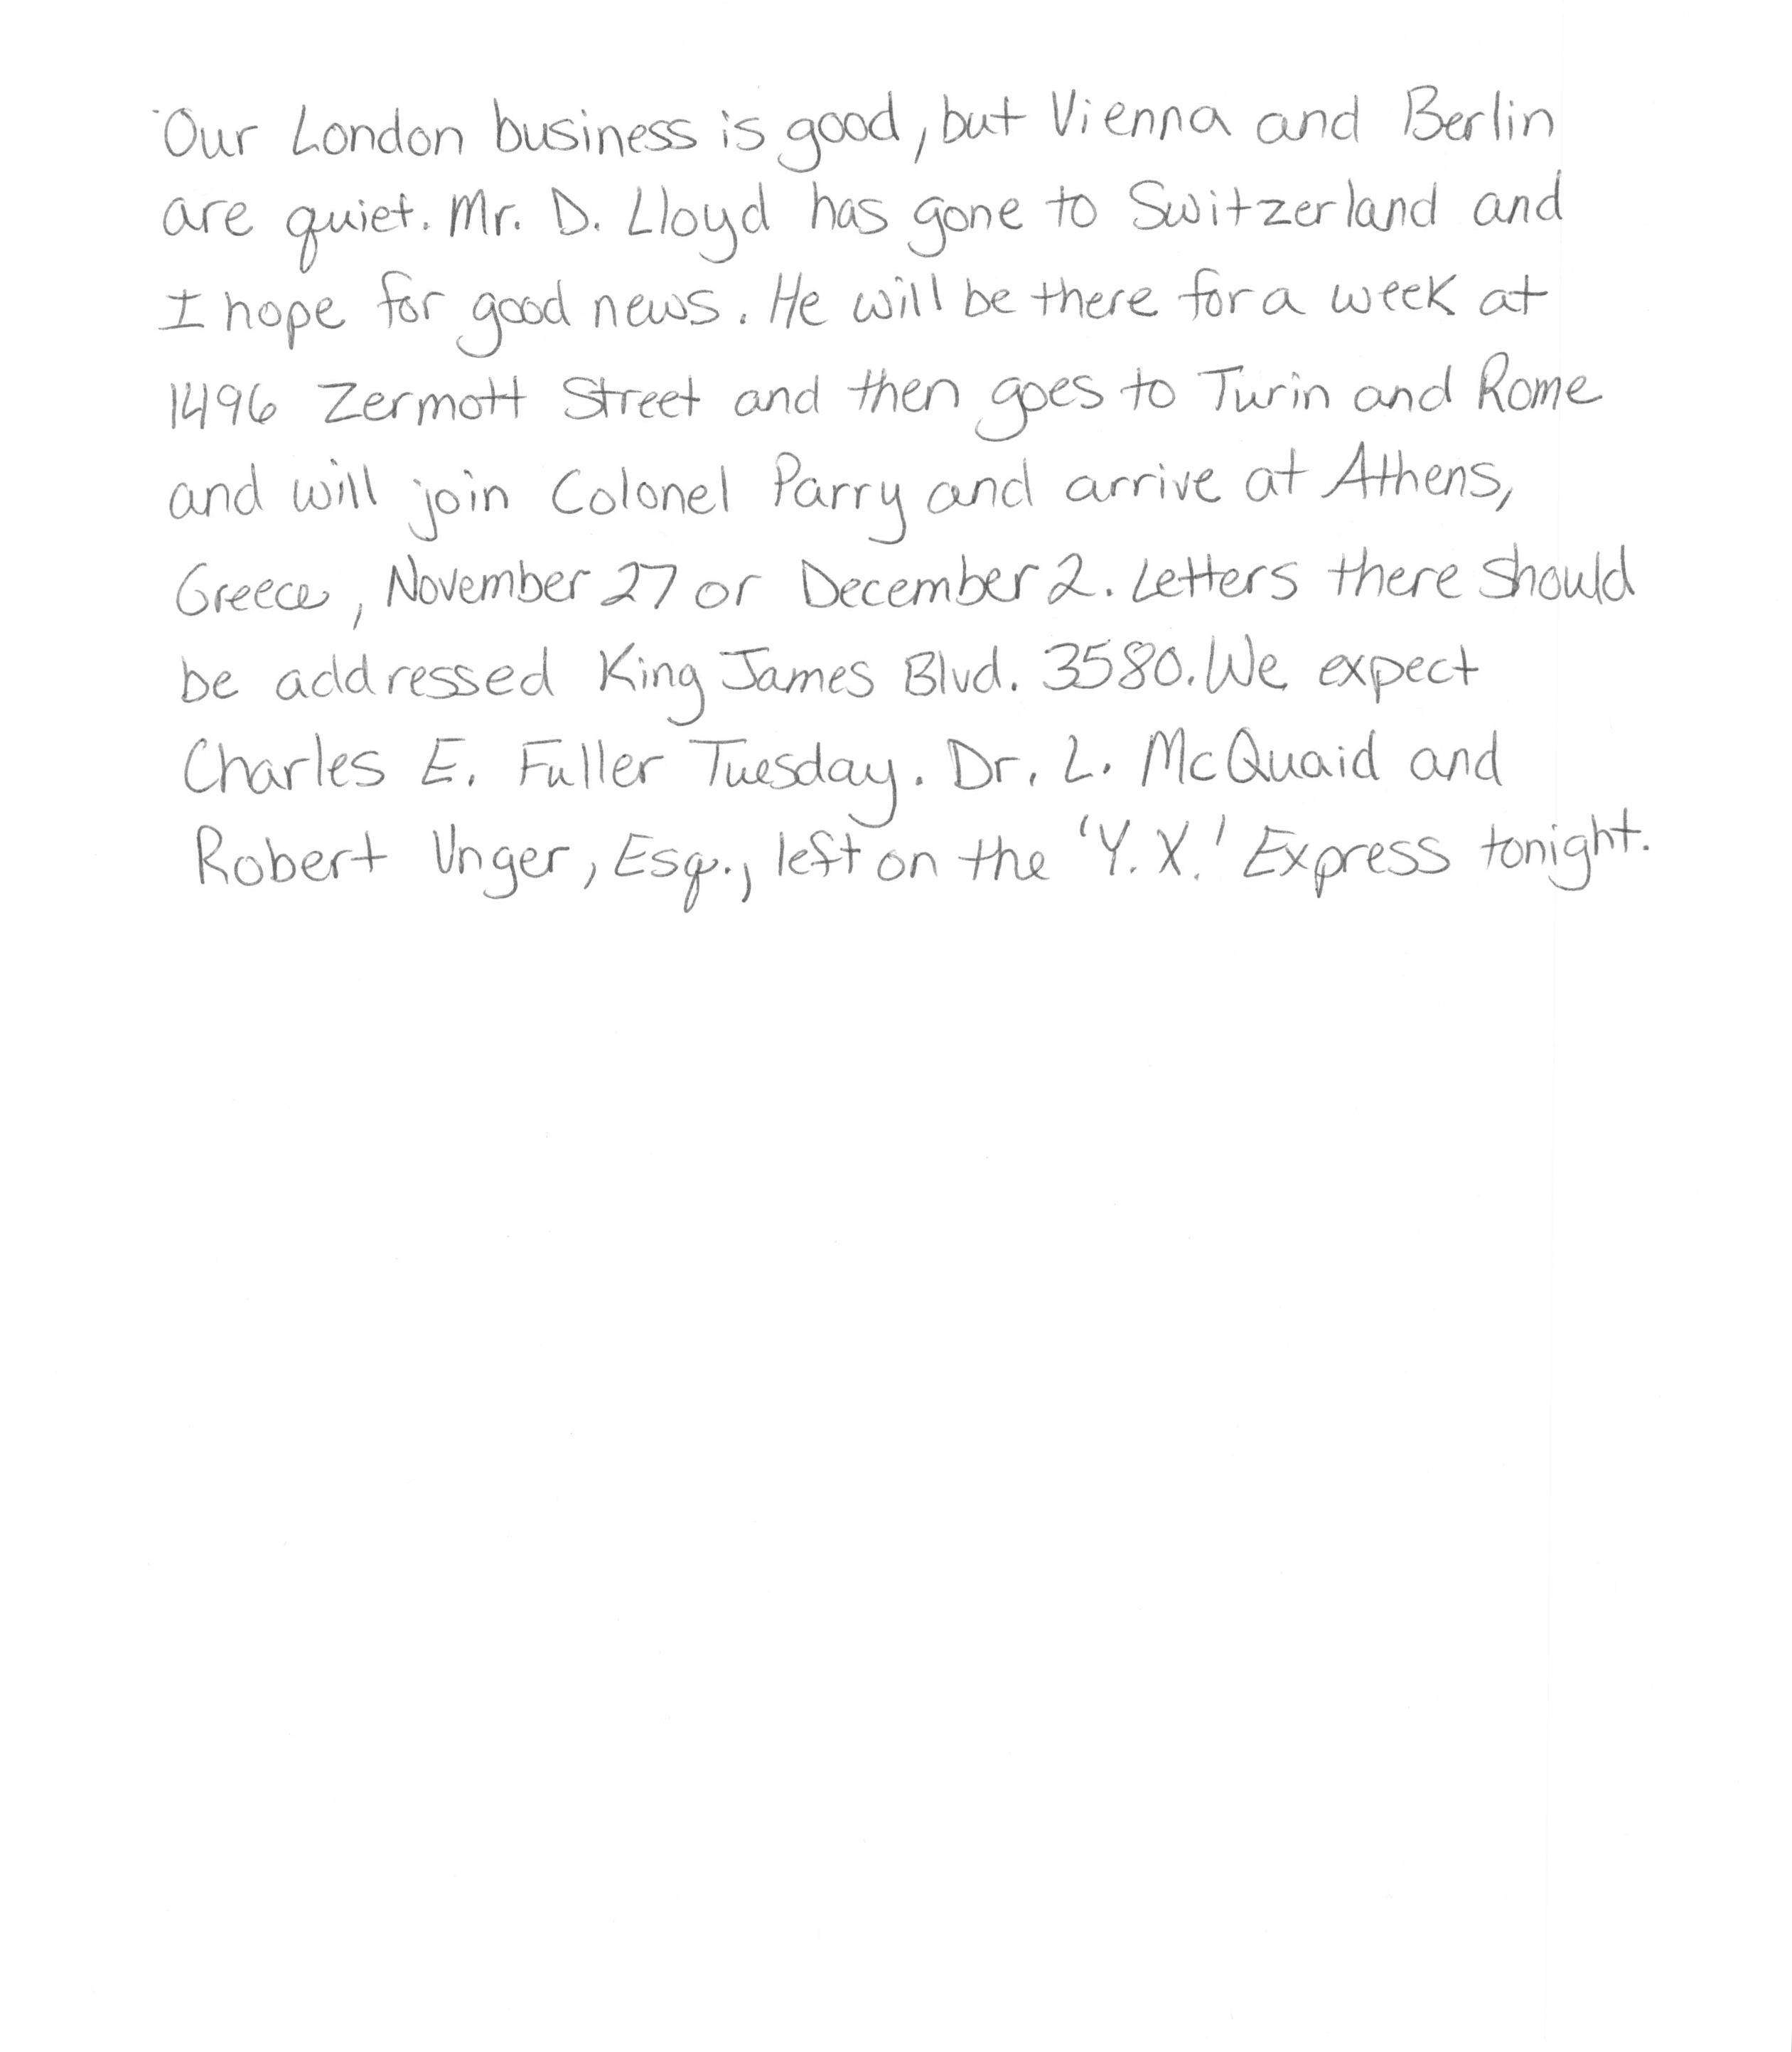 Our London business is good, but Vienna and Berlin
are quiet. Mr. D. Lloyd has gone to Switzerland and
I hope for good news. He will be there for a week at
1496 Zermott Street and then goes to Turin and Rome
and will join Colonel Parry and arrive at Athens,
Greece, November 27 or December 2. Letters there should
be addressed King James Blvd. 3580. We expect
Charles E. Fuller Tuesday. Dr. L. McQuaid and
Robert Unger, Esq., left on the 'Y.X.' Express tonight.